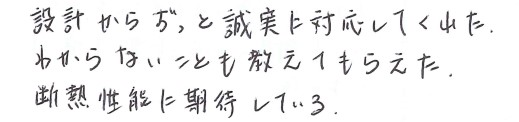 設計からずっと誠実に対応してくれた.
わからないことも教えてもらえた.
断熱性能に期待している.